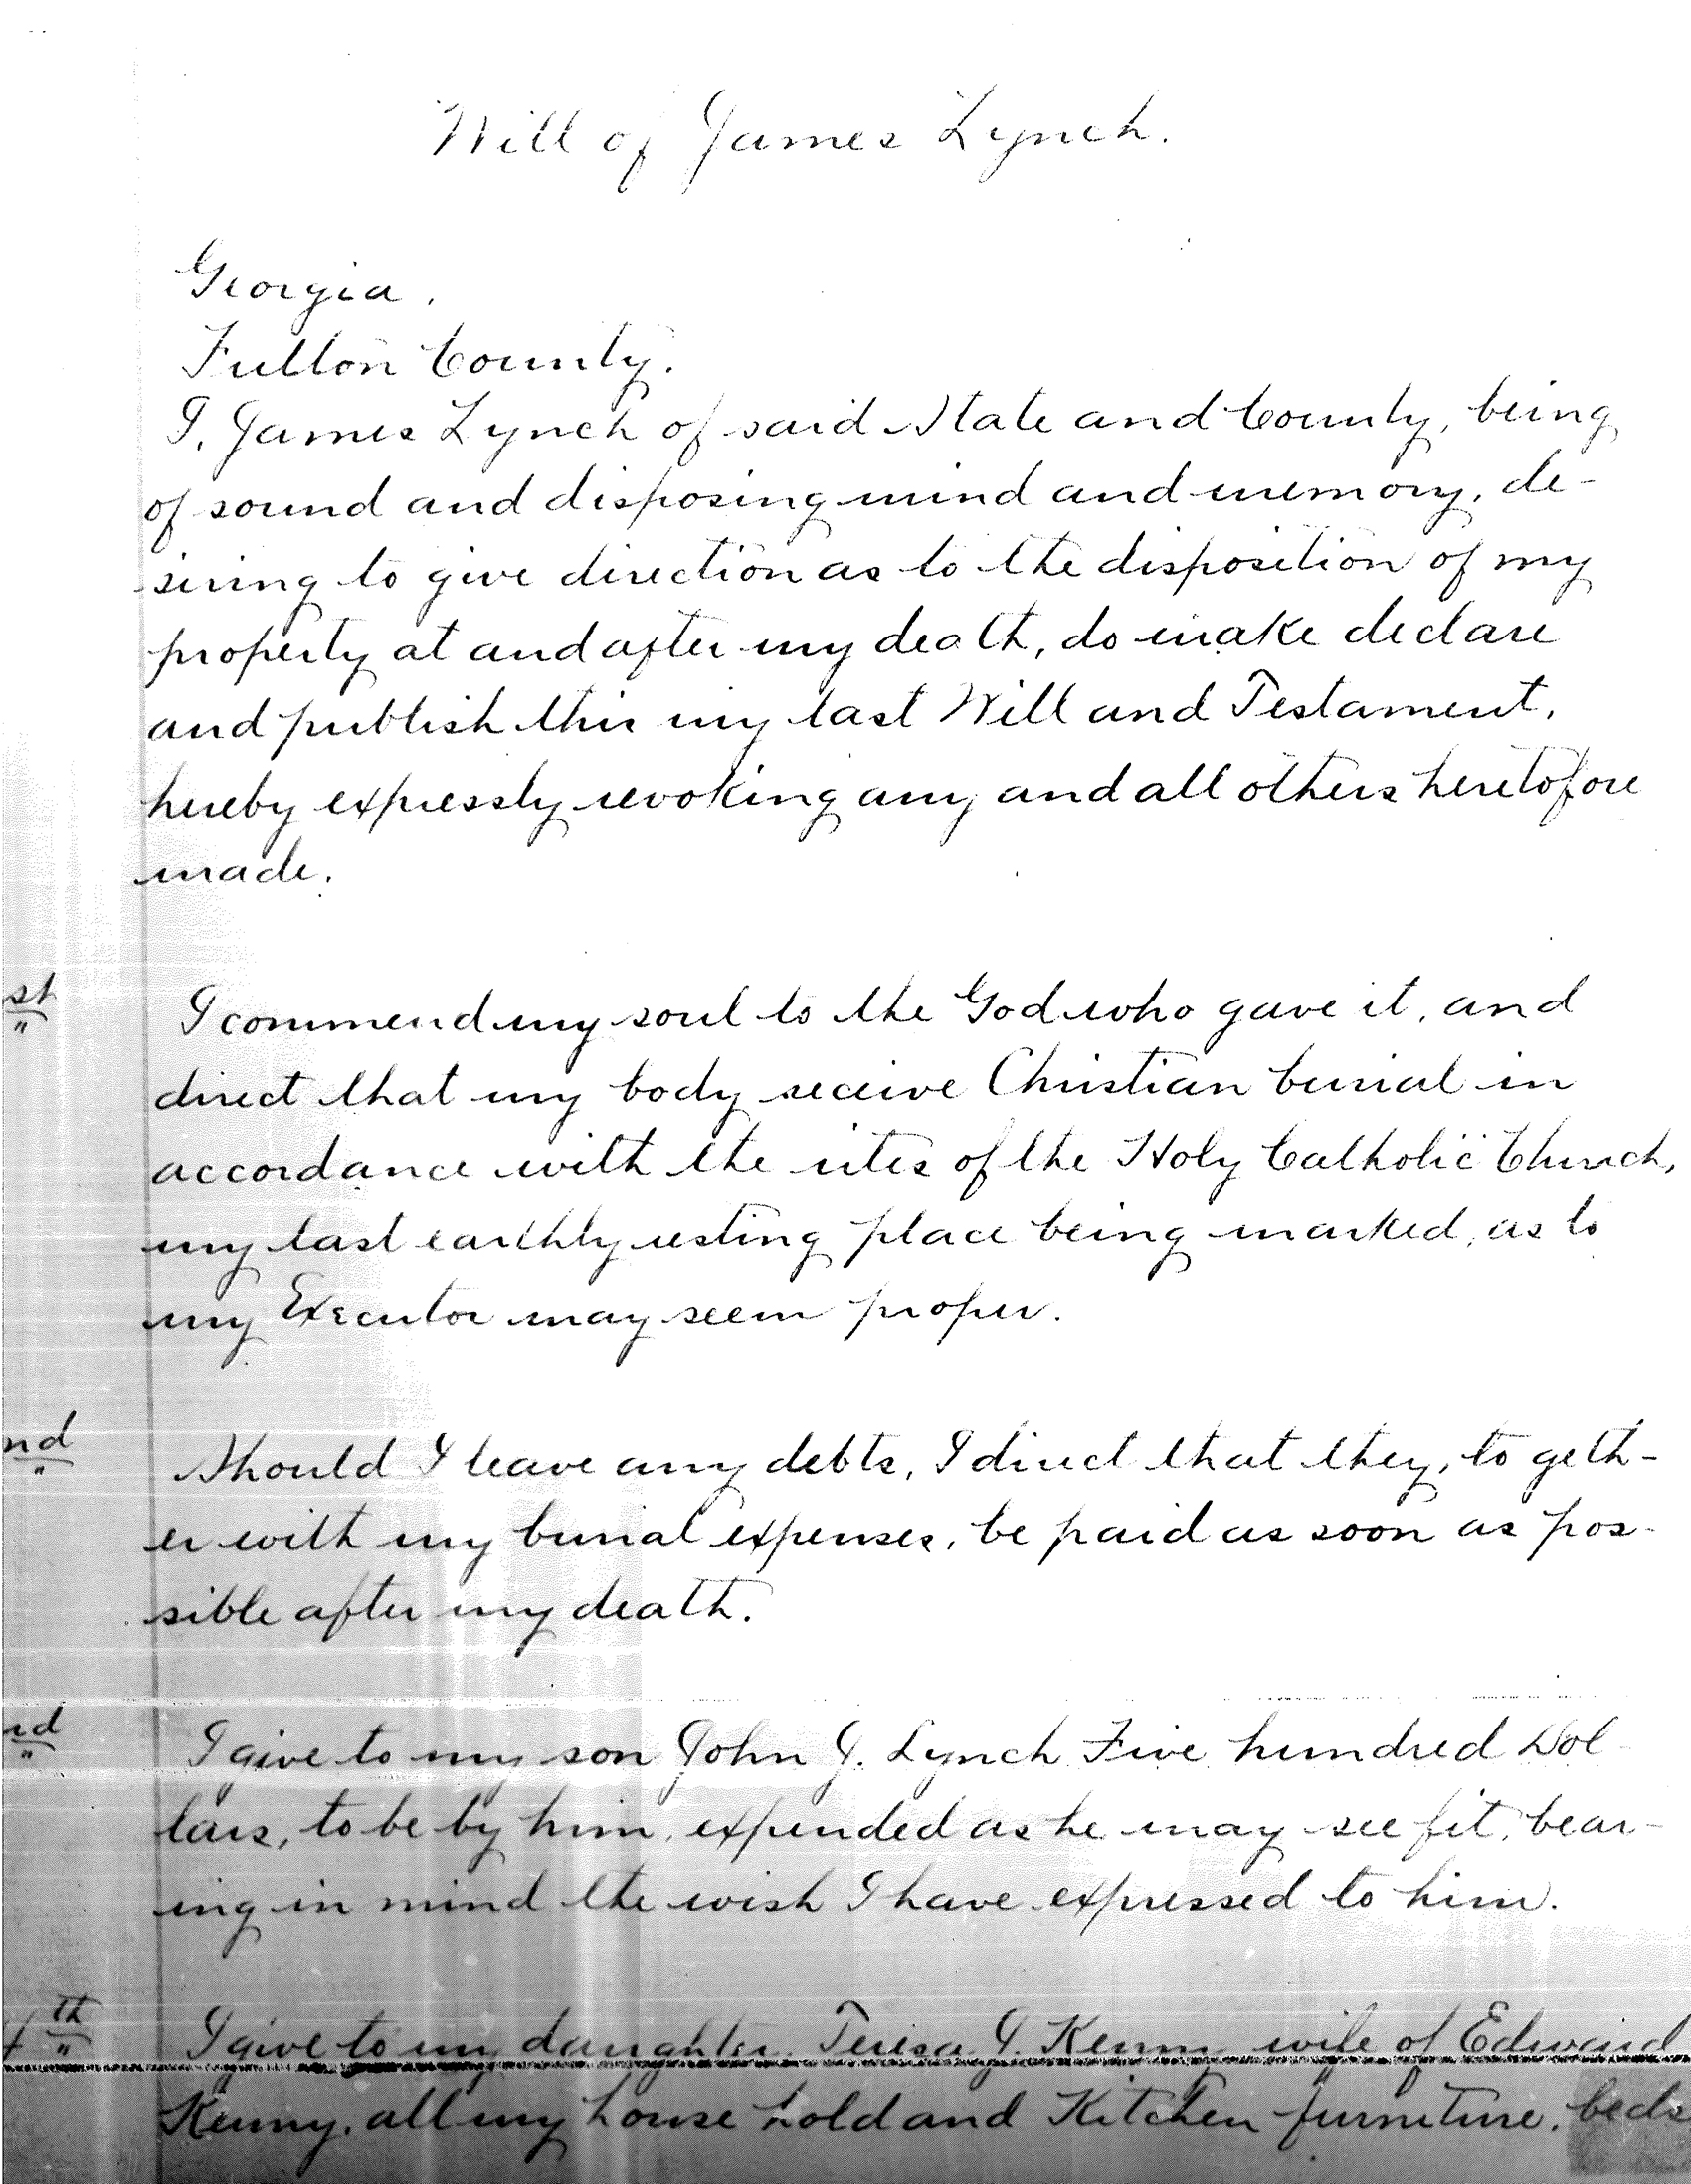 Will of James Lynch.
Georgia.
Fulton County.
I, James Lynch of said State and County, being
of sound and disposing mind and memory, de-
siring to give direction as to the disposition of my
property at and after my death, do make declare
and publish this my last Will and Testament,
hereby expressly revoking any and all others heretofore
made.
st
I commend my soul to the God who gave it, and
direct that my body receive Christian burial in
accordance with the rites of the Holy Catholic Church,
my last earthly resting place being marked, as to
my Executor may seem proper.
nd
Should I leave any debts, I direct that they, to geth-
er with my burial expenses, be paid as soon as pos-
sible after my death.
rd
I give to my son John J. Lynch Five hundred Dol
lars, to be by him, expended as he may see fit, bear-
ing in mind the wish I have expressed to him.
4th
I give to my daughter Teresa J. Kenny wife of Edward
Kenny, all my house hold and Kitchen furniture, beds